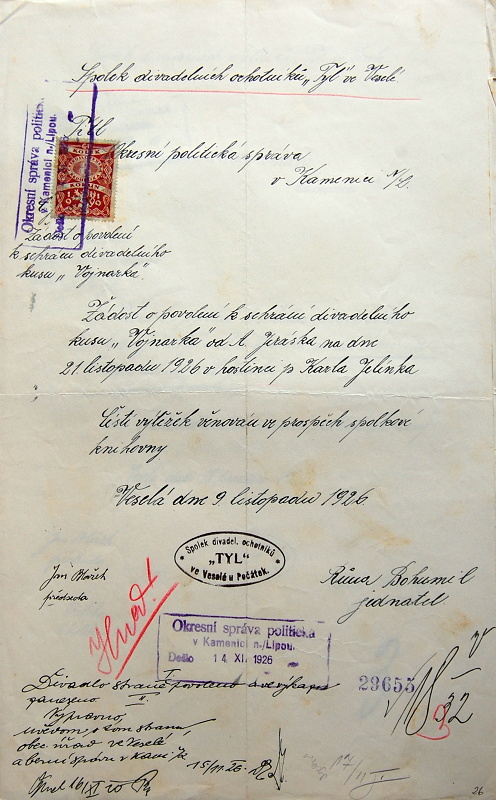 Spolek divadelních ochotníků „Tyl" ve Veselé
Okresní správa politická
v Kamenici n./Lipou.
Došlo
Okresní politická správa
v Kamenici n/L.
Žádost o povolení
k sehrání divadelního
kusu „Vojnarka".
Žádost o povolení k sehrání divadelního
kusu „Vojnarka" od A. Jiráska na dne
21. listopadu 1926 v hostinci p Karla Jelínka
Čistí výtěžek věnován ve prospěch spolkové
knihovny
Veselá dne 9. listopadu 1926
Spolek divadel. ochotníků
„TYL"
ve Veselé u Počátek.
Jan
předseda
Růna Bohumil
jednatel
Ihned!
Okresní správa politická
v Kamenici n./Lipou.
Došlo 14 XI. 1926
29655
I.
Divadlo straně povoleno a ve výkaze
II.
Vypraveno,
obec. úřad ve Veselé
a berní správu v Kam.
15/11 26
32
17/11
26